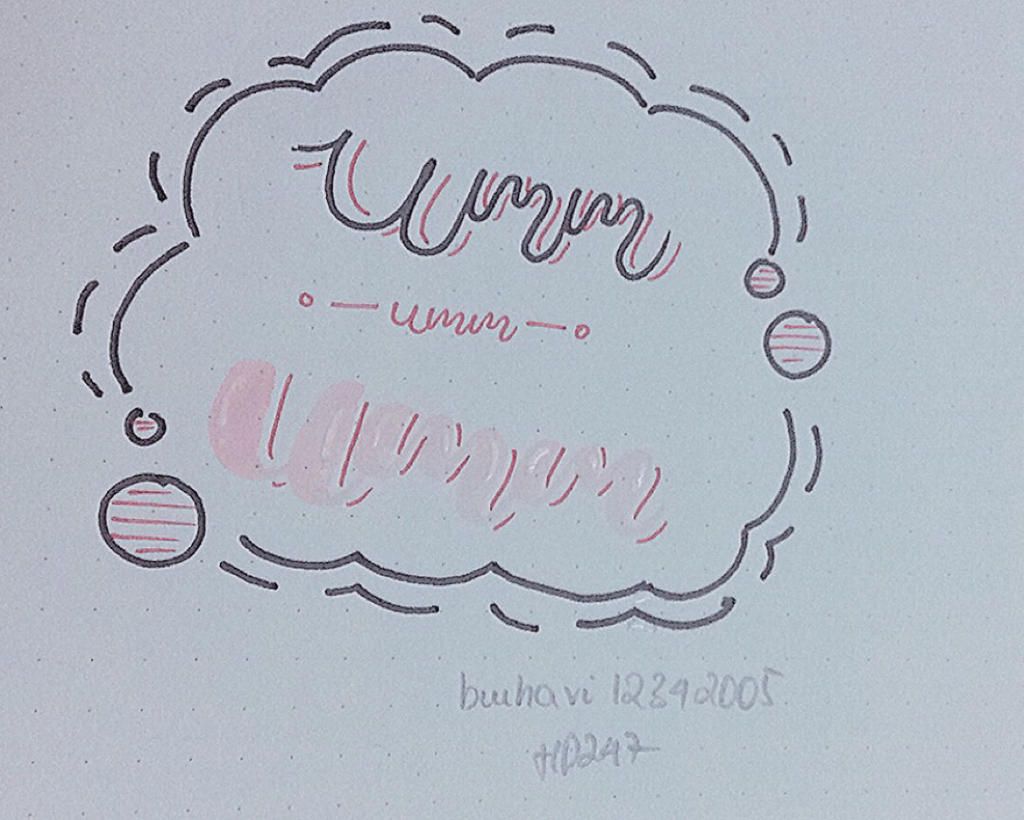 Ummm
umm
Ummm
buhavi 12342005
HP247